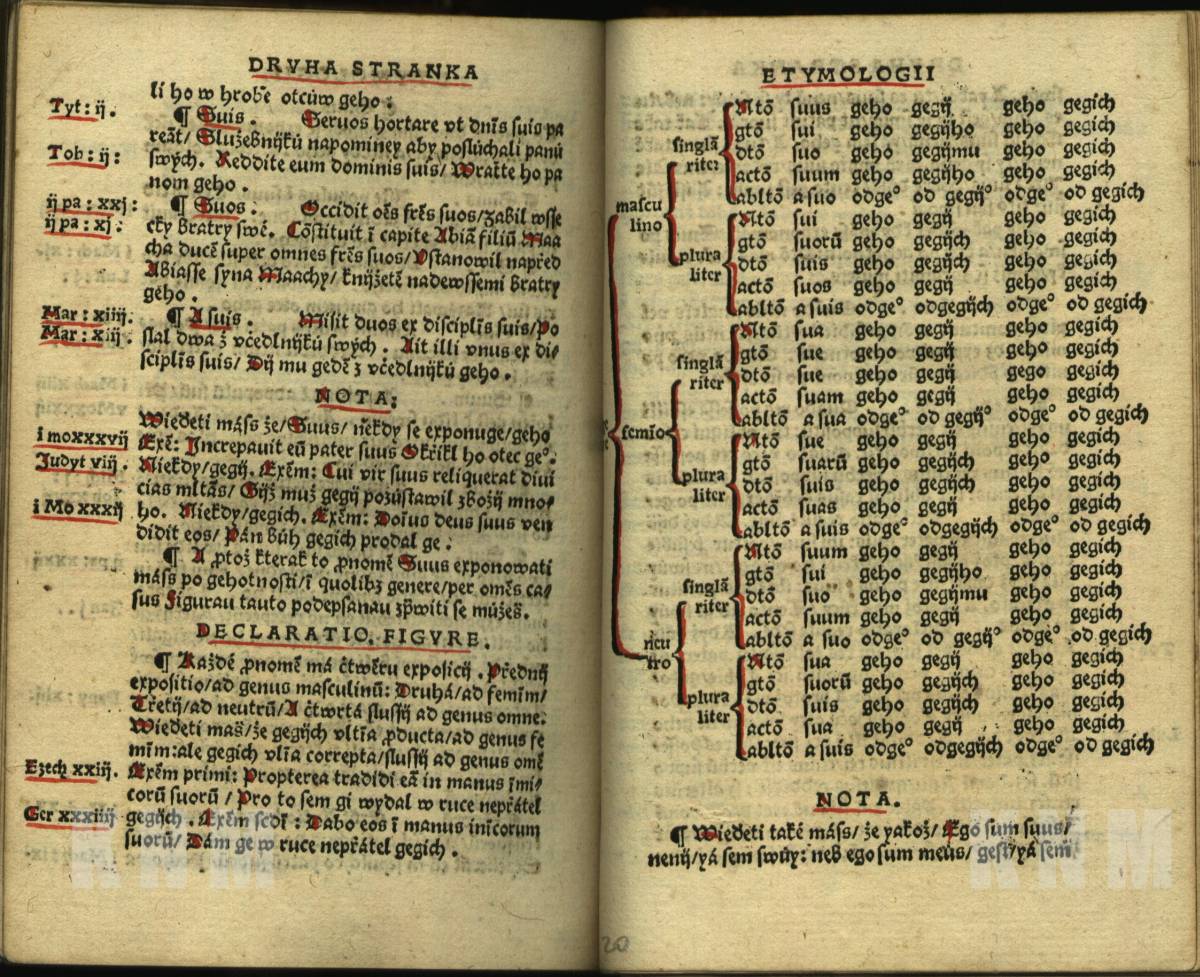 DRVHA STRANKA
li ho w hrobě otcůw geho :
Tyt: ij. ¶ Suis . Seruos hortare vt dnīs suis pa
reāt/ Služebnijků napominey aby poslúchali panů
Tob: ij: swých. Reddite eum dominis suis/ Wratte ho pa
nom geho .
ij pa: xxj: ¶ Suos : Occidit oēs frēs suos/ zabil wsse
ij pa: xj: cky bratry swé. Cōstituit ī capite Abiā filiū Maa
cha ducē super omnes frēs suos/ Vstanowil napřed
Abiasse syna Maachy/ knijžetě nadewssemi bratry
geho .
Mar: xiiij. ¶ A suis . Misit duos ex disciplīs suis/ Po
Mar: xiij. slal dwa z včedlnijků swých . Ait illi vnus ex di/
sciplīs suis/ Dij mu gedē z včedlnijků geho .
NOTA:
Wiedeti máss že/ Suus/ někdy se exponuge/ geho
i moxxxvij Exē: Increpauit eū pater suus Okřikl ho otec ge°.
Judyt viij. Niekdy/ gegij. Exēm: Cui vir suus reliquerat diui
cias mltās/ Gijž muž gegij pozůstawil zbožij mno/
i Mo xxxij ho. Niekdy/ gegich. Exēm: Dōīus deus suus ven
didit eos/ Pán bůh gegich prodal ge :
¶ A ptož kterak to pnomē Suus exponowati
máss po gehotnosti/ ī quolibz genere/ per omēs ca/
sus Figurau tauto podepsanau zpwiti se můžeš.
DECLARATIO. FIGVRE.
¶ Každé pnomē má čtwěru exposicij . Přednij
expositio/ ad genus masculinū: Druhá/ ad femīm/
Třetij/ ad neutrū/ A čtwrtá slussij ad genus omne.
Wiedeti maš/ že gegijch vltīa pducta/ ad genus fe
mīm: ale gegich vltīa correpta/ slussij ad genus omē
Ezech xxiij. Exēm primi: Propterea tradidi eā in manus īmi/
corū suorū / Pro to sem gi wydal w ruce nepřátel
Ger xxxiiij gegijch . Exēm scdī : Dabo eos ī manus inīcorum
suorū/ Dám ge w ruce nepřátel gegich .
ETYMOLOGII
mascu
lino
singlā
riter
Ntō suus geho gegij geho gegich
gtō sui geho gegijho geho gegich
dtō suo geho gegijmu geho gegich
actō suum geho gegijho geho gegich
abltō a suo odge° od gegij° odge° od gegich
plura
liter
Ntō sui geho gegij geho gegich
gtō suorū geho gegijch geho gegich
dtō suis geho gegijch geho gegich
actō suos geho gegij geho gegich
abltō a suis odge° odgegijch odge° od gegich
femīo
singlā
riter
Ntō sua geho gegij geho gegich
gtō sue geho gegij geho gegich
dtō sue geho gegij gego gegich
actō suam geho gegij geho gegich
abltō a sua odge° od gegij° odge° od gegich
plura
liter
Ntō sue geho gegij geho gegich
gtō suarū geho gegijch geho gegich
dtō suis geho gegijch geho gegich
actō suas geho gegij geho gegich
abltō a suis odge° odgegijch odge° od gegich
ncu
tro
singlā
riter
Ntō suum geho gegij geho gegich
gtō sui geho gegijho geho gegich
dtō suo geho gegijmu geho gegich
actō suum geho gegij geho gegich
abltō a suo odge° od gegij° odge° od gegich
plura
liter
Ntō sua geho gegij geho gegich
gtō suorū geho gegijch geho gegich
dtō suis geho gegijch geho gegich
actō sua geho gegij geho gegich
abltō a suis odge° odgegijch odge° od gegich
NOTA.
¶ Wiedeti také máss/ že yakož/ Ego sum suus/
nenij/ yá sem swůy: neb ego sum meus/ gest/ yá sem
20
KNM
KNM